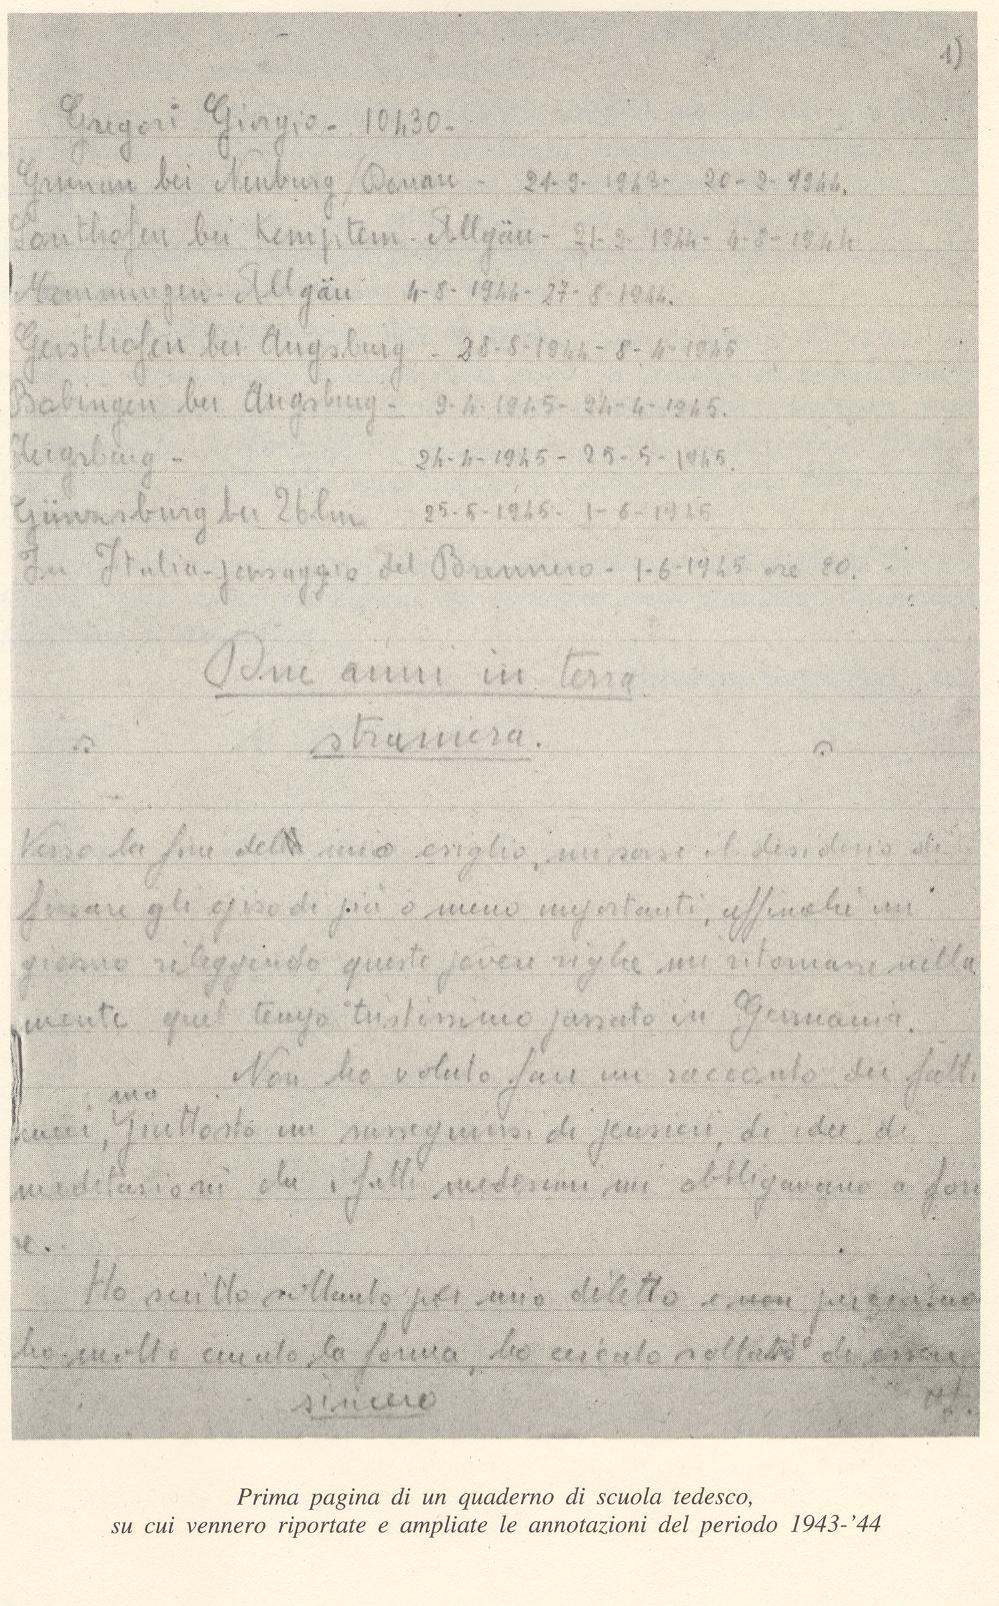 1)
Gregori Giorgio - 10430 -
Grunau bei Neuburg / Donau - 21-9-1943- 20-2-1944.
Sonthofen bei Kemptem - Allgäu - 21-2-1944- 4-8-1944
Memmingen - Allgäu 4-8-1944- 27-8-1944.
Gersthofen bei Augsburg - 28-8-1944- 8-4-1945
Bobingen bei Augsburg - 9-4-1945- 24-4-1945.
Augsburg - 24-4-1945 - 25-5-1945.
Günzsburg bei Ulm 25-5-1945- 1-6-1945
In Italia - passaggio del Brennero - 1-6-1945 ore 20.
Due anni in terra
straniera.
Verso la fine del mio esiglio, mi sorse il desiderio di
fissare gli episodi più o meno importanti, affinchè un
giorno rileggendo queste povere righe mi ritornasse nella
mente quel tempo tristissimo passato in Germania.
Non ho voluto fare un racconto dei fatti
ma
, piuttosto un susseguirsi di pensieri, di idee, di
meditazioni che i fatti medesimi mi obbligavano a fa
re.
Ho scritto soltanto per mio diletto e non
ho molto curato la forma, ho cercato soltanto di essere
sincero
Prima pagina di un quaderno di scuola tedesco,
su cui vennero riportate e ampliate le annotazioni del periodo 1943-'44